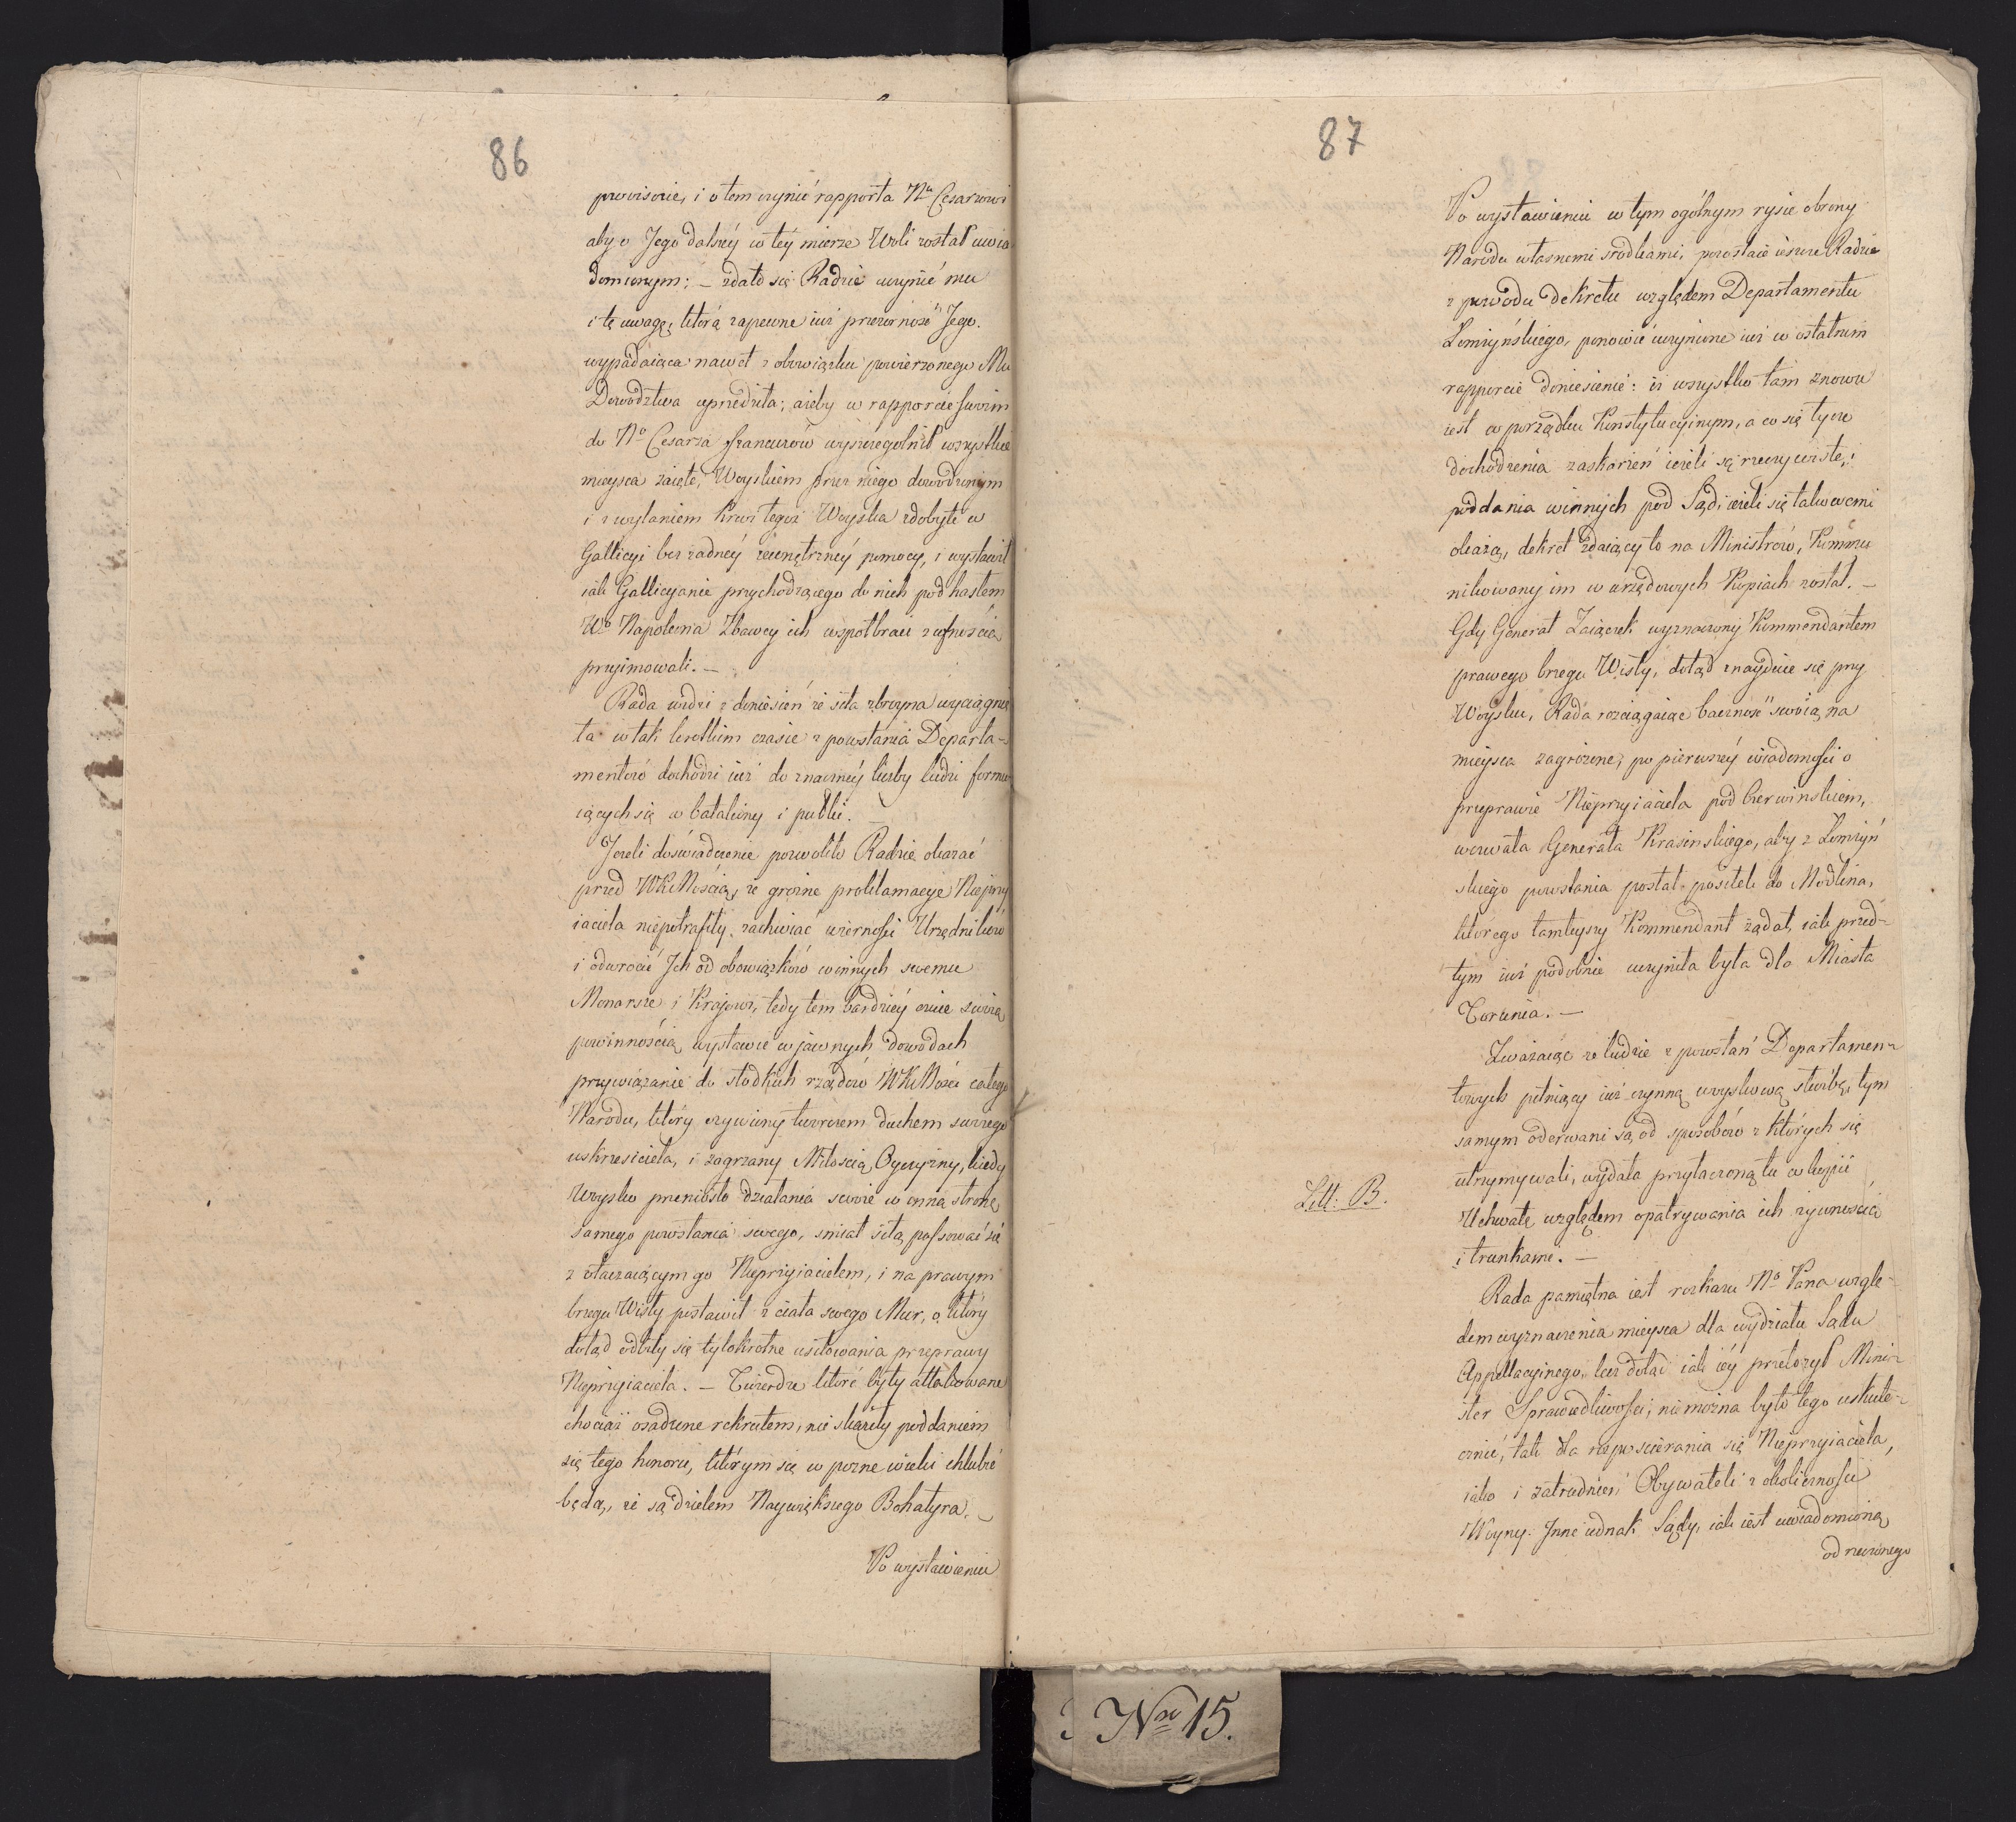 86
prowisorie, i o tem czynić rapporta Nu Cesarzowi
aby o Jego dalszey w tey mierze Woli został uwia-
domionym; – zdało się Radzie uczynić mu
i tę uwagę, którą zapewne iuż przezorność Jego.
wypadaiąca nawet z obowiązku powierzonego Mu
Dowodztwa uprzedziła; ażeby w rapporcie swoim
do No Cesarza francuzów wyszczególnił wszystkie
mieysca zaięte, Woyskiem przez niego dowodzonym
i z wylaniem krwi tegoż Woyska zdobyte w
Gallicyi bez żadney zewnętrzney pomocy, i wystawił
iak Gallicyanie przychodzącego do nich pod hasłem
Wo Napoleona Zbawcy ich współbraci z ufnością
przyimowali. –
Rada widzi z doniesień że siła zbroyna wyciągnię-
ta w tak krótkim czasie z powstania Departa-
mentów dochodzi iuż do znaczney liczby ludzi formu-
iących się w bataliony i pułki. –
Jeżeli doświadczenie pozwoliło Radzie okazać
przed WKMością, że groźne proklamacye Nieprzy
iaciela niepotrafiły zachwiać wierności Urzędników
i odwrócić Ich od obowiązków winnych swemu
Monarsze i Krajowi, tedy tem bardziey czuie swoią
powinnością wystawić w jawnych dowodach
przywiązanie do słodkich rządów WKMości całego
Narodu, który ożywiony twórczem duchem swoiego
wskrzesiciela, i zagrzany Miłością Oyczyzny, kiedy
Woysko przeniosło działania swoie w inną stronę
samego powstania swego, śmiał siłą passować się
z otaczaiącym go Nieprzyiacielem, i na prawym
brzegu Wisły postawił z ciała swego Mur, o który
dotąd odbiły się tylokrotne usiłowania przeprawy
Nieprzyiaciela. – Twierdze które były attakowane
chociaż osadzone rekrutem, nie skaziły poddaniem
się tego honoru, którym się w pozne wieki chlubić
będą, że są dziełem Naywiększego Bohatyra. –
Po wystawieniu
87
Po wystawieniu w tym ogólnym rysie obrony
Narodu własnemi srodkami, pozostaie ieszcze Radzie
z powodu dekretu względem Departamentu
Łomżyńskiego, ponowić uczynione iuż w ostatnim
rapporcie doniesienie: iż wszystko tam znowu
iest w porządku Konstytucyinym, a co się tycze
dochodzenia zaskarżeń ieżeli są rzeczywiste, i
poddania winnych pod Sąd, ieżeli się takowemi
okażą, dekret zdaiący to na Ministrów, Kommu
nikowany im w urzędowych Kopiach został. –
Gdy Generał Zaiączek wyznaczony Kommendantem
prawego brzegu Wisły, dotąd znayduie się przy
Woysku, Rada rozciągaiąc baczność swoią na
mieysca zagrożone, po pierwszey wiadomości o
przeprawie Nieprzyiaciela pod Czerwinskiem,
wezwała Generała Krasinskiego, aby z Łomżyń
skiego powstania posłał posiłek do Modlina,
którego tamteyszy Kommendant żądał, iak przed-
tym iuż podobnie uczyniła była dla Miasta
Torunia. –
Zważaiąc że ludzie z powstań Departamen-
towych pełniący iuż czynną woyskową służbę, tym
samym oderwani są od sposobów z których się
utrzymywali, wydała przyłączoną tu w kopii
Litt: B.
Uchwałę względem opatrywania ich żywnością
i trunkami. –
Rada pamiętna iest rozkazu No Pana wzglę-
dem wyznaczenia mieysca dla wydziału Sądu
Appellacyinego, lecz dotąd iak iéy przełożył Mini-
ster Sprawiedliwości, niemożna było tego uskute-
cznić, tak dla rozpościerania się Nieprzyiaciela,
iako i zatrudnień Obywateli z okoliczności
Woyny. Inne iednak Sądy, iak iest uwiadomioną
od rzeczonego
Nro 15.